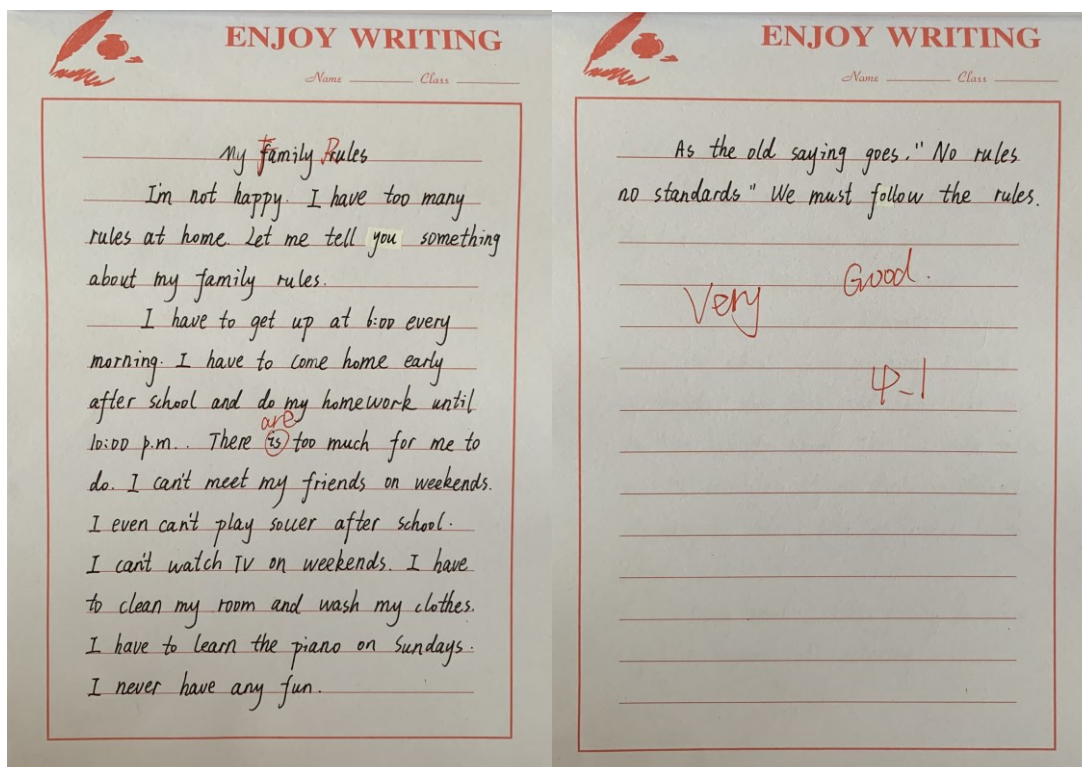 ENJOY WRITING
Name Class
My family rules
I'm not happy. I have too many
rules at home. Let me tell you something
about my family rules.
I have to get up at 6:00 every
morning. I have to come home early
after school and do my homework until
are
10:00 p.m.. There is too much for me to
do. I can't meet my friends on weekends.
I even can't play soccer after school.
I can't watch TV on weekends. I have
to clean my room and wash my clothes.
I have to learn the piano on Sundays.
I never have any fun.
ENJOY WRITING
Name Class
As the old saying goes." No rules
no standards" We must follow the rules.
Very Good.